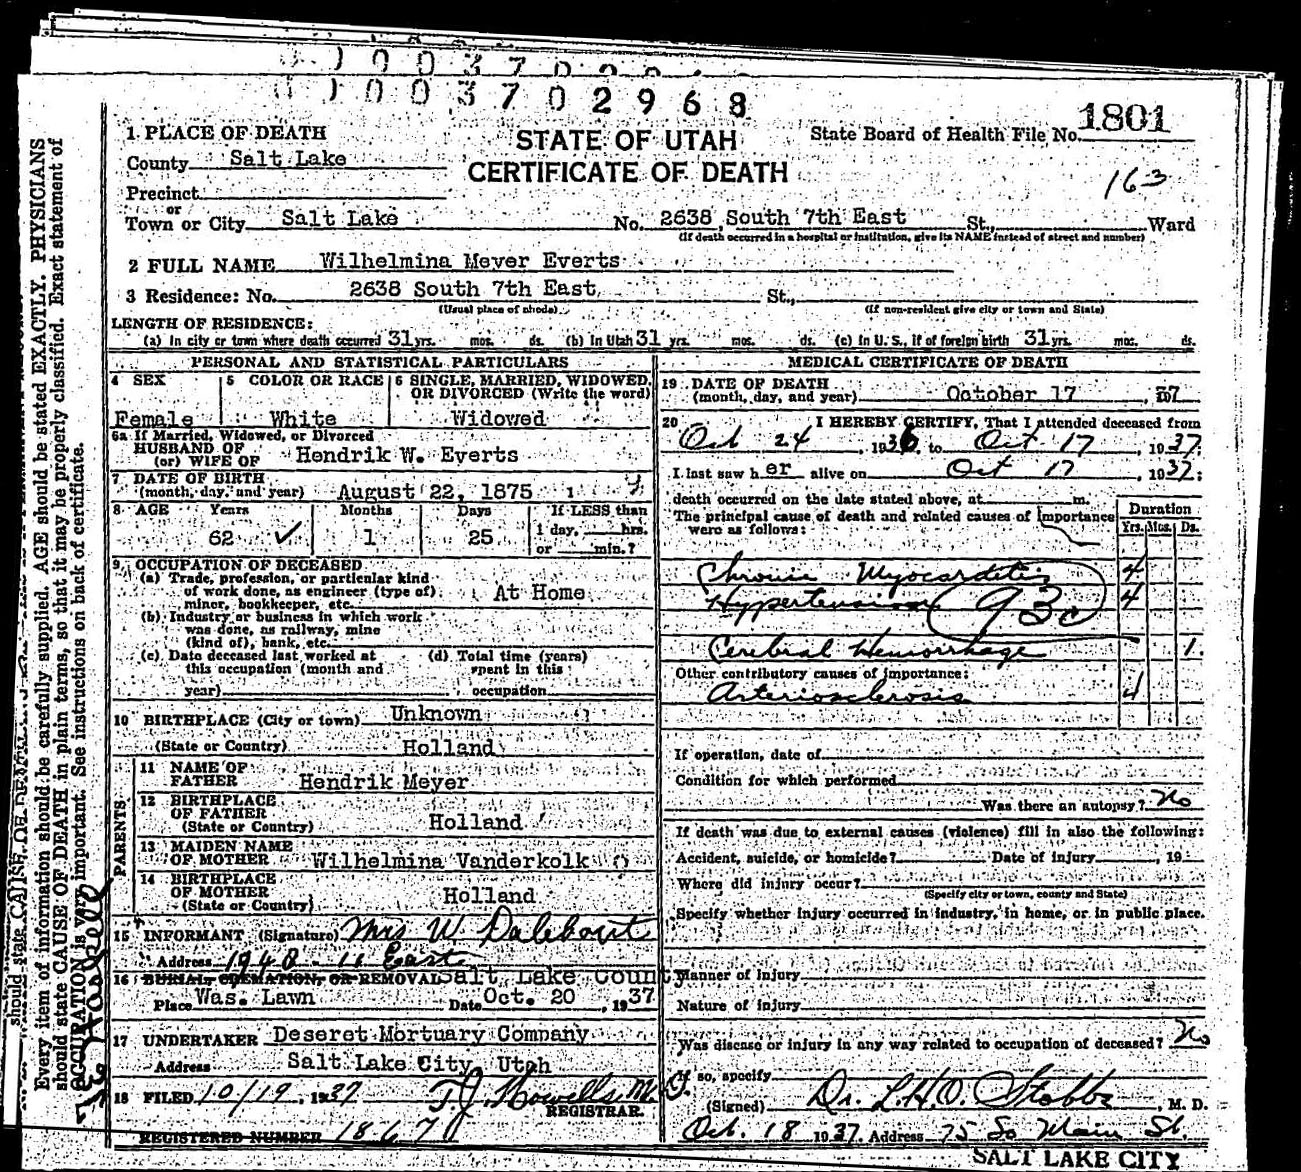 0 0 0 3 7 0 2 9 6 8
1801
1 PLACE OF DEATH
STATE OF UTAH
State Board of Health File No. 1801
County Salt Lake
CERTIFICATE OF DEATH
163
Precinct
or
Town or City Salt Lake No. 2638 South 7th East St., Ward
(If death occurred in a hospital or institution, give its NAME instead of street and number)
2 FULL NAME Wilhelmina Meyer Everts
3 Residence: No. 2638 South 7th East St.,
(Usual place of abode) (If non-resident give city or town and State)
LENGTH OF RESIDENCE:
(a) In city or town where death occurred 31 yrs. mos. ds. (b) In Utah 31 yrs. mos. ds. (c) In U. S., if of foreign birth 31 yrs. mos. ds.
PERSONAL AND STATISTICAL PARTICULARS
4 SEX
Female
5 COLOR OR RACE
White
6 SINGLE, MARRIED, WIDOWED, OR DIVORCED (Write the word)
Widowed
6a If Married, Widowed, or Divorced
HUSBAND OF
(or) WIFE OF Hendrik W. Everts
7 DATE OF BIRTH
(month, day, and year) August 22, 1875
8 AGE Years Months Days If LESS than
62 ✓ 1 25 1 day, hrs.
or min.?
9 OCCUPATION OF DECEASED
(a) Trade, profession, or particular kind
of work done, as engineer (type of)
miner, bookkeeper, etc. At Home
(b) Industry or business in which work
was done, as railway, mine
(kind of), bank, etc.
(c) Date deceased last worked at
this occupation (month and
year)
(d) Total time (years)
spent in this
occupation
10 BIRTHPLACE (City or town) Unknown
(State or Country) Holland
PARENTS
11 NAME OF
FATHER Hendrik Meyer
12 BIRTHPLACE
OF FATHER
(State or Country) Holland
13 MAIDEN NAME
OF MOTHER Wilhelmina Vanderkolk
14 BIRTHPLACE
OF MOTHER
(State or Country) Holland
15 INFORMANT (Signature) Mrs W Dalebout
Address 1940 - 11 East
16 BURIAL, CREMATION, OR REMOVAL Salt Lake County
Place Was. Lawn Date Oct. 20, 1937
17 UNDERTAKER Deseret Mortuary Company
Address Salt Lake City, Utah
18 FILED 10/19, 1937 T.J. Howells, M.D.
REGISTRAR.
REGISTERED NUMBER 1867
MEDICAL CERTIFICATE OF DEATH
19 DATE OF DEATH
(month, day, and year) October 17, 37
20 I HEREBY CERTIFY, That I attended deceased from
Oct 24, 1936, to Oct 17, 1937:
I last saw her alive on Oct 17, 1937:
death occurred on the date stated above, at m.
The principal cause of death and related causes of importance
were as follows:
Duration
Yrs. Mos. Ds.
Chronic Myocarditis 4
Hypertension 4
93c
Cerebral Hemorrhage 1
Other contributory causes of importance:
Arteriosclerosis 4
If operation, date of
Condition for which performed
Was there an autopsy? No
If death was due to external causes (violence) fill in also the following:
Accident, suicide, or homicide? Date of injury, 19
Where did injury occur?
(Specify city or town, county and State)
Specify whether injury occurred in industry, in home, or in public place.
Manner of Injury
Nature of injury
Was disease or injury in any way related to occupation of deceased? No
If so, specify
(Signed) Dr. L.H.O. Stobbe, M. D.
Oct. 18 1937. Address 75 So Main St.
SALT LAKE CITY
Every item of information should be carefully supplied. AGE should be stated EXACTLY. PHYSICIANS
should state CAUSE OF DEATH in plain terms, so that it may be properly classified. Exact statement of
OCCUPATION is very important. See instructions on back of certificate.